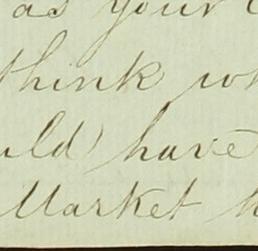 as your
think
have
Market